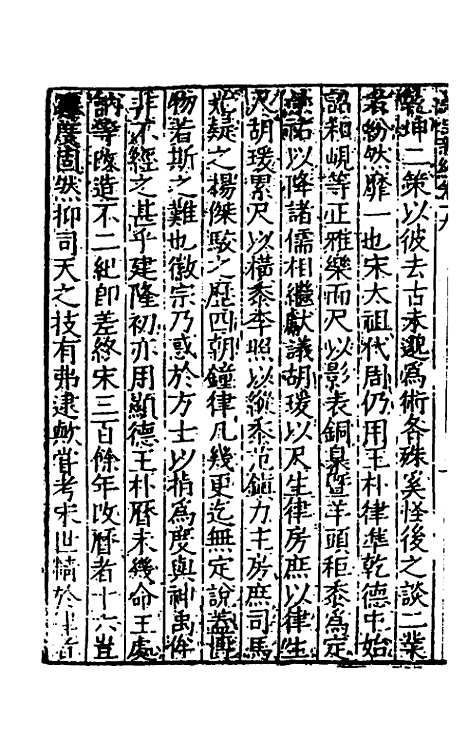 乾坤二策以彼去古未遐為術各殊奚怪後之談二業
者紛然靡一也宋太祖代周仍用王朴律準乾德中始
詔和峴等正雅樂而尺以影表銅臬暨羊頭秬黍為定
景祐以降諸儒相繼獻議胡瑗以尺生律房庶以律生
尺胡瑗累尺以橫黍李照以縱黍范鎮力主房庶司馬
光疑之楊傑駁之歷四朝鐘律凡幾更迄無定說蓋博
物若斯之難也徽宗乃惑於方士以指為度與神禹侔
非不經之甚乎建隆初亦用顯德王朴曆未幾命王處
訥等改造不二紀即差終宋三百餘年改曆者十六豈
躔度固然抑司天之技有弗逮歟嘗考宋世精於